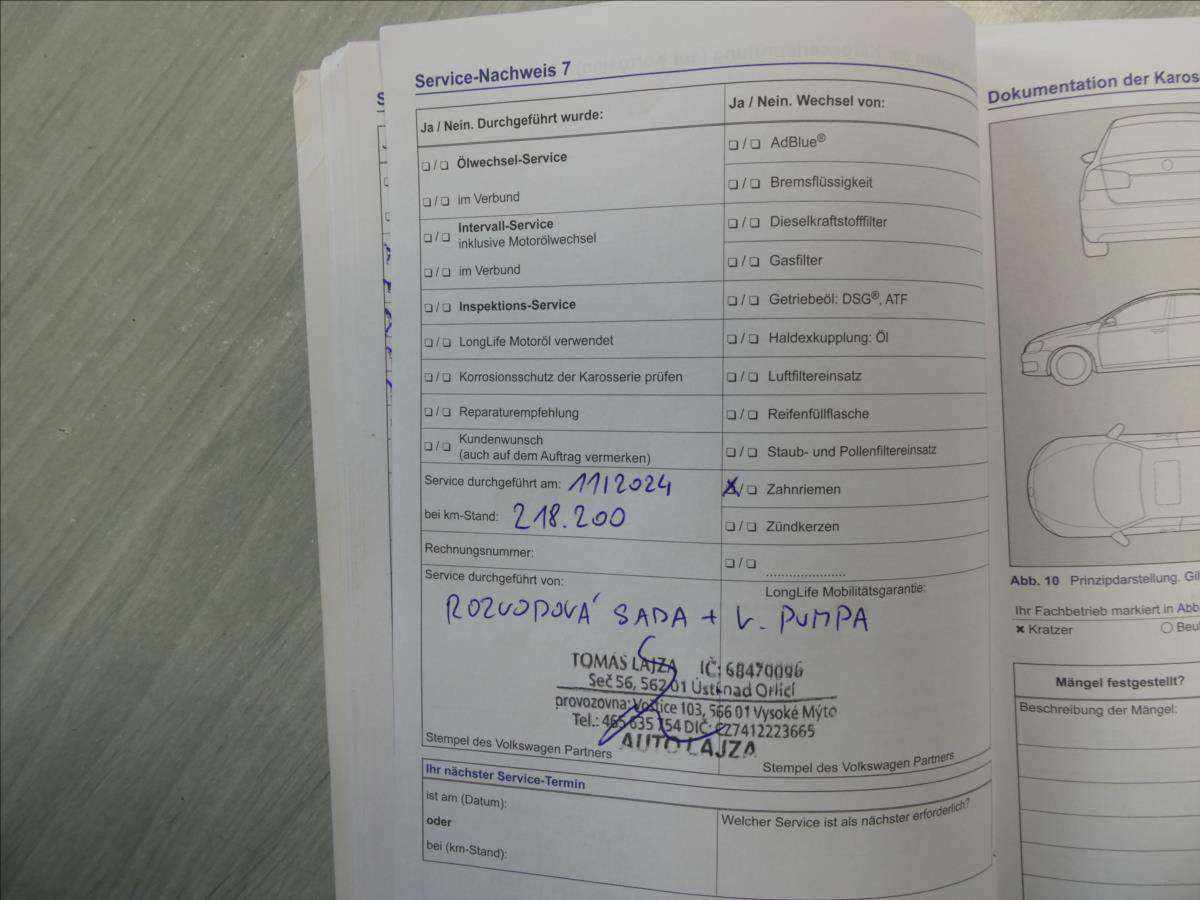 Service-Nachweis 7
Ja / Nein. Durchgeführt wurde:
❏ / ❏ Ölwechsel-Service
❏ / ❏ im Verbund
❏ / ❏ Intervall-Service
inklusive Motorölwechsel
❏ / ❏ im Verbund
❏ / ❏ Inspektions-Service
❏ / ❏ LongLife Motoröl verwendet
❏ / ❏ Korrosionsschutz der Karosserie prüfen
❏ / ❏ Reparaturempfehlung
❏ / ❏ Kundenwunsch
(auch auf dem Auftrag vermerken)
Service durchgeführt am: 11/2024
bei km-Stand: 218.200
Rechnungsnummer:
Service durchgeführt von:
Ja / Nein. Wechsel von:
❏ / ❏ AdBlue®
❏ / ❏ Bremsflüssigkeit
❏ / ❏ Dieselkraftstofffilter
❏ / ❏ Gasfilter
❏ / ❏ Getriebeöl: DSG®, ATF
❏ / ❏ Haldexkupplung: Öl
❏ / ❏ Luftfiltereinsatz
❏ / ❏ Reifenfüllflasche
❏ / ❏ Staub- und Pollenfiltereinsatz
X / ❏ Zahnriemen
❏ / ❏ Zündkerzen
❏ / ❏ ......................
LongLife Mobilitätsgarantie:
ROZVODOVÁ SADA + V. PUMPA
TOMÁŠ LAJZA IČ: 68470096
Seč 56, 562 01 Ústí nad Orlicí
provozovna: Vostice 103, 566 01 Vysoké Mýto
Tel.: 465 635 754 DIČ: CZ7412223665
AUTO LAJZA
Stempel des Volkswagen Partners
Stempel des Volkswagen Partners
Ihr nächster Service-Termin
ist am (Datum):
oder
bei (km-Stand):
Welcher Service ist als nächster erforderlich?
Dokumentation der Karos
Abb. 10 Prinzipdarstellung.
Ihr Fachbetrieb markiert in Abb
✖ Kratzer ○ Beul
Mängel festgestellt?
Beschreibung der Mängel: